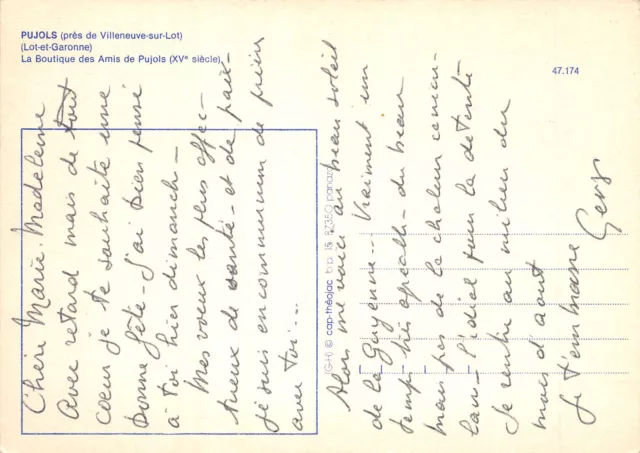 PUJOLS (près de Villeneuve-sur-Lot)
(Lot-et-Garonne)
La Boutique des Amis de Pujols (XVe siècle).
47.174
(G-H) © cap-théojac b.p. 15 87350 panazol
Chère Marie. Madeleine
Avec retard mais de tout
coeur je te souhaite une
bonne fête - J'ai bien pensé
à toi hier dimanche -
Mes voeux les plus affec-
tueux de santé - et de paix -
je suis en communion de prière
avec toi...
Alors me voici au beau soleil
de la Guyenne... Vraiment un
temps très agréable - du beau
mais pas de la chaleur
l'idéal pour la détente
Je rentre au milieu du
mois d'août
Je t'embrasse